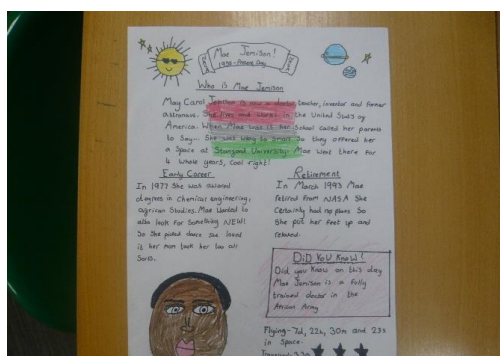 Mae Jemison!
1956-Present Day
Who is Mae Jemison
May Carol Jemison is now a doctor, teacher, inventor and former
astronave. She lives and works in the United Stats of
America. When Mae was 16 her school called her parents
to Say... She was way to Smart So they offered her
a Space at Stanford University. Mae went there for
4 whole years, cool right!
Early Career
In 1977 She was awored
degrees in Chemical engineering,
african Studies. Mae wanted to
also look for Something NEW!
So She picked dance she loved
it her mom took her too all
Sorts.
Retirement
In March 1993 Mae
retired from NASA She
Certainly had no plans So
She put her feet up and
relaxed.
DiD KoU Know!
Did you Know on this day
Mae Jemison is a fully
trained doctor in the
African Army
Flying-7d, 22h, 30m and 23s
in Space.